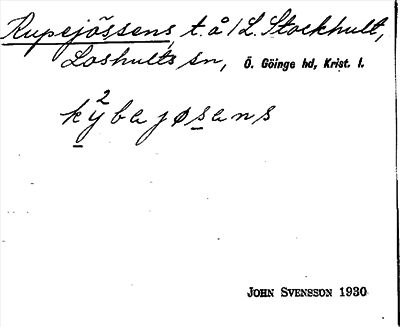 Rupejössens, t. å 1 L. Stockhult,
Loshults sn, Ö. Göinge hd, Krist. l.
k2ybajøsans
JOHN SVENSSON 1930